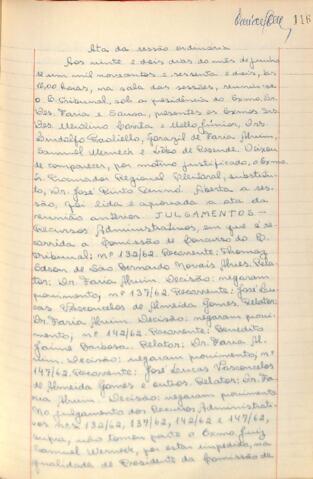 116
Ata da sessão ordinária
Aos vinte e dois dias do mês de junho
de um mil novecentos e sessenta e dois, às
16,00 horas, na sala das sessões, reuniu-se
o E. Tribunal, sob a presidência do Exmo. Sr.
Des. Faria e Sousa, presentes os Exmos. Srs.
Des. Merolino Corrêa e Mello Júnior, Drs.
Lindolfo Paoliello, Gorazil de Faria Alvim,
Samuel Werneck e Lôbo de Resende. Deixou
de comparecer, por motivo justificado, o Exmo.
Sr. Procurador Regional Eleitoral, substitu-
to, Dr. José Pinto Renó. Aberta a ses-
são, foi lida e aprovada a ata da
reunião anterior. JULGAMENTOS -
Recursos Administrativos, em que é re-
corrida a Comissão de Concurso do E.
Tribunal: nº 132/62. Recorrente: Thomaz
Edson de São Bernardo Novais Alves. Rela-
tor: Dr. Faria Alvim. Decisão: negaram
provimento, nº 137/62. Recorrente: José Lu-
cas Vasconcelos de Almeida Gomes. Relator:
Dr. Faria Alvim. Decisão: negaram provi-
mento, nº 142/62. Recorrente: Benedito
Jaime Barbosa. Relator: Dr. Faria Al-
vim. Decisão: negaram provimento, nº
147/62. Recorrente: José Lucas Vasconcelos
de Almeida Gomes e outros. Relator: Dr. Fa-
ria Alvim. Decisão: negaram provimento.
No julgamento dos Recursos Administrati-
vos nos. 132/62, 137/62, 142/62 e 147/62,
supra, não tomou parte o Exmo. Juiz
Samuel Werneck, por estar impedido, na
qualidade de Presidente da Comissão de